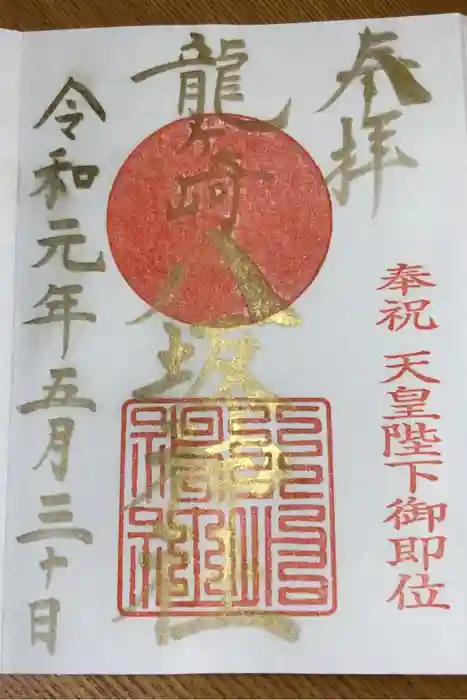 奉拝
奉祝 天皇陛下御即位
龍崎八坂神社
令和元年五月三十日